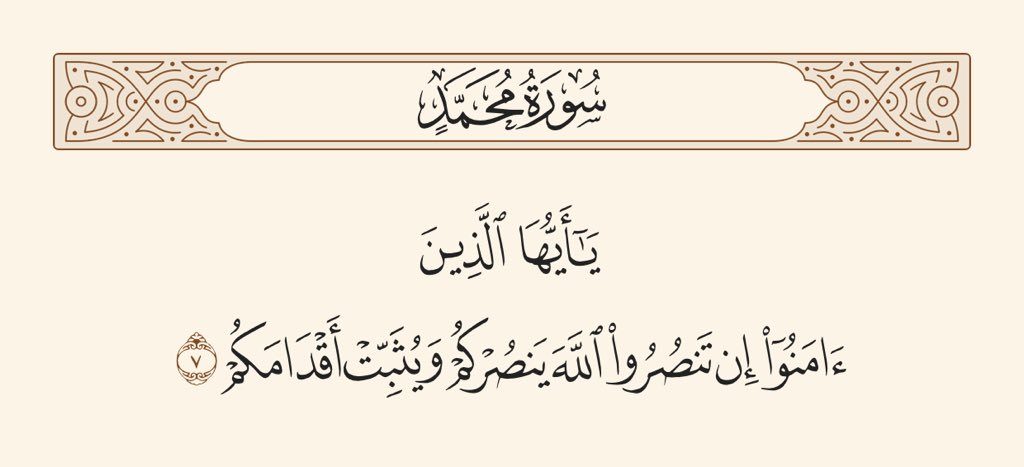 سُورَةُ مُحَمَّدٍ
يَٰٓأَيُّهَا ٱلَّذِينَ
ءَامَنُوٓا۟ إِن تَنصُرُوا۟ ٱللَّهَ يَنصُرْكُمْ وَيُثَبِّتْ أَقْدَامَكُمْ ٧